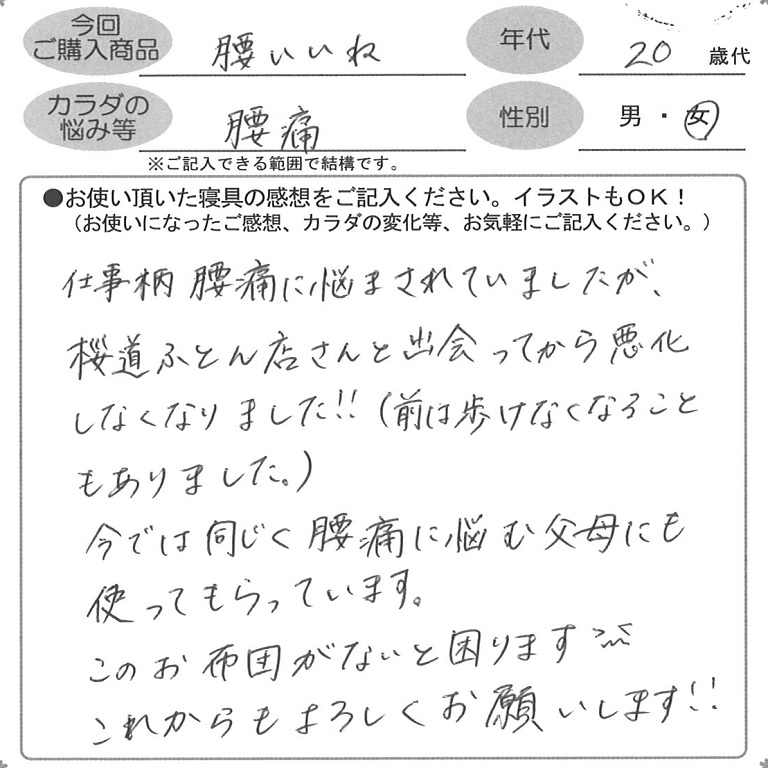 今回
ご購入商品
腰いいね
年代
20 歳代
カラダの
悩み等
腰痛
性別
男・女
※ご記入できる範囲で結構です。
●お使い頂いた寝具の感想をご記入ください。イラストもOK！
（お使いになったご感想、カラダの変化等、お気軽にご記入ください。）
仕事柄腰痛に悩まされていましたが、
桜道ふとん店さんと出会ってから悪化
しなくなりました!!(前は歩けなくなること
もありました。)
今では同じく腰痛に悩む父母にも
使ってもらっています。
このお布団がないと困ります
これからもよろしくお願いします!!